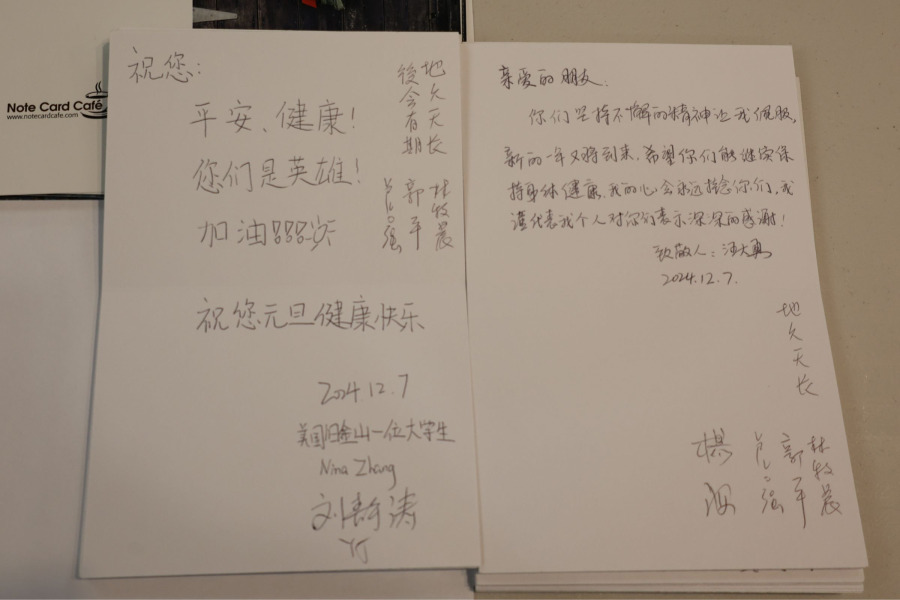 Note Card Café
www.notecardcafe.com
祝您:
平安、健康!
您们是英雄!
加油
祝您元旦健康快乐
2024.12.7
美国旧金山一位大学生
Nina Zhang
刘静涛
YJ
地久天长
後会有期
林牧晨
郭平
亲爱的朋友:
你们坚持不懈的精神让我佩服,
新的一年又将到来,希望你们能继续保
持身体健康,我的心会永远惦念你们,我
谨代表我个人对你们表示深深的感谢!
致敬人:汪大勇
2024.12.7.
地久天长
林牧晨
郭平